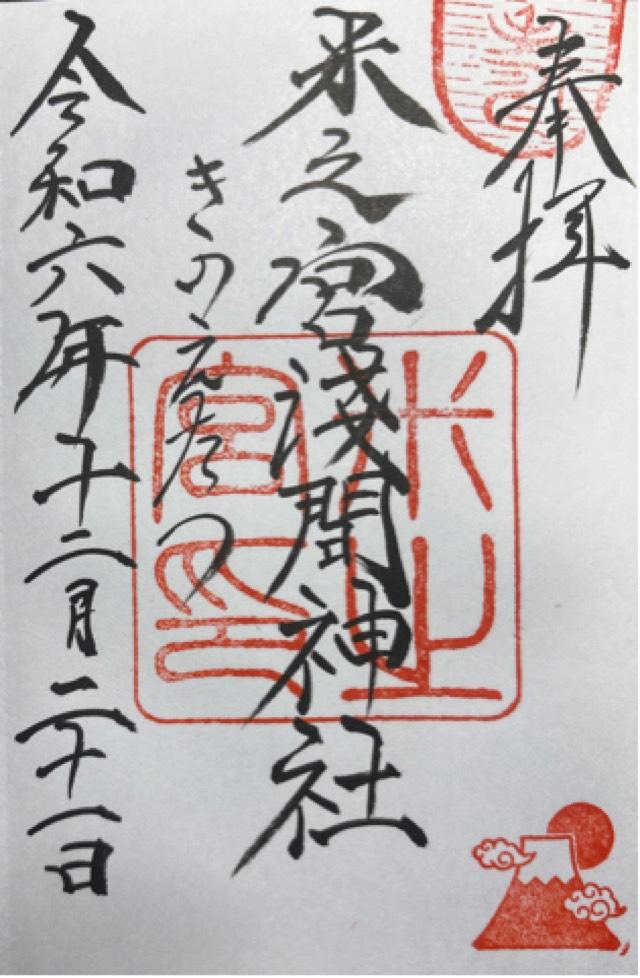 奉拝
米之宮淺間神社
きのえたつ
令和六年十二月二十一日
米之
宮印